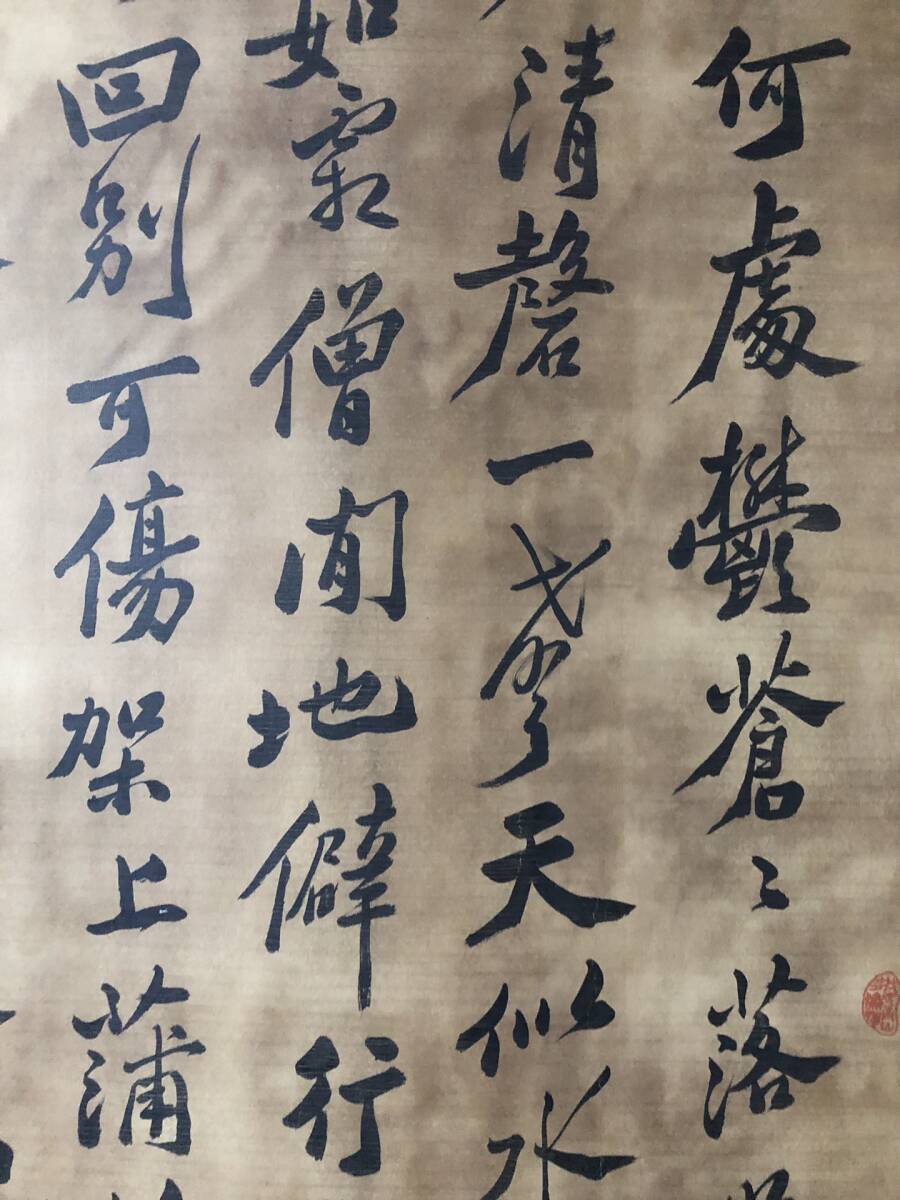 何處鬱蒼〻落
清磬一聲天似水
如霜僧閒地僻行
回別可傷架上蒲